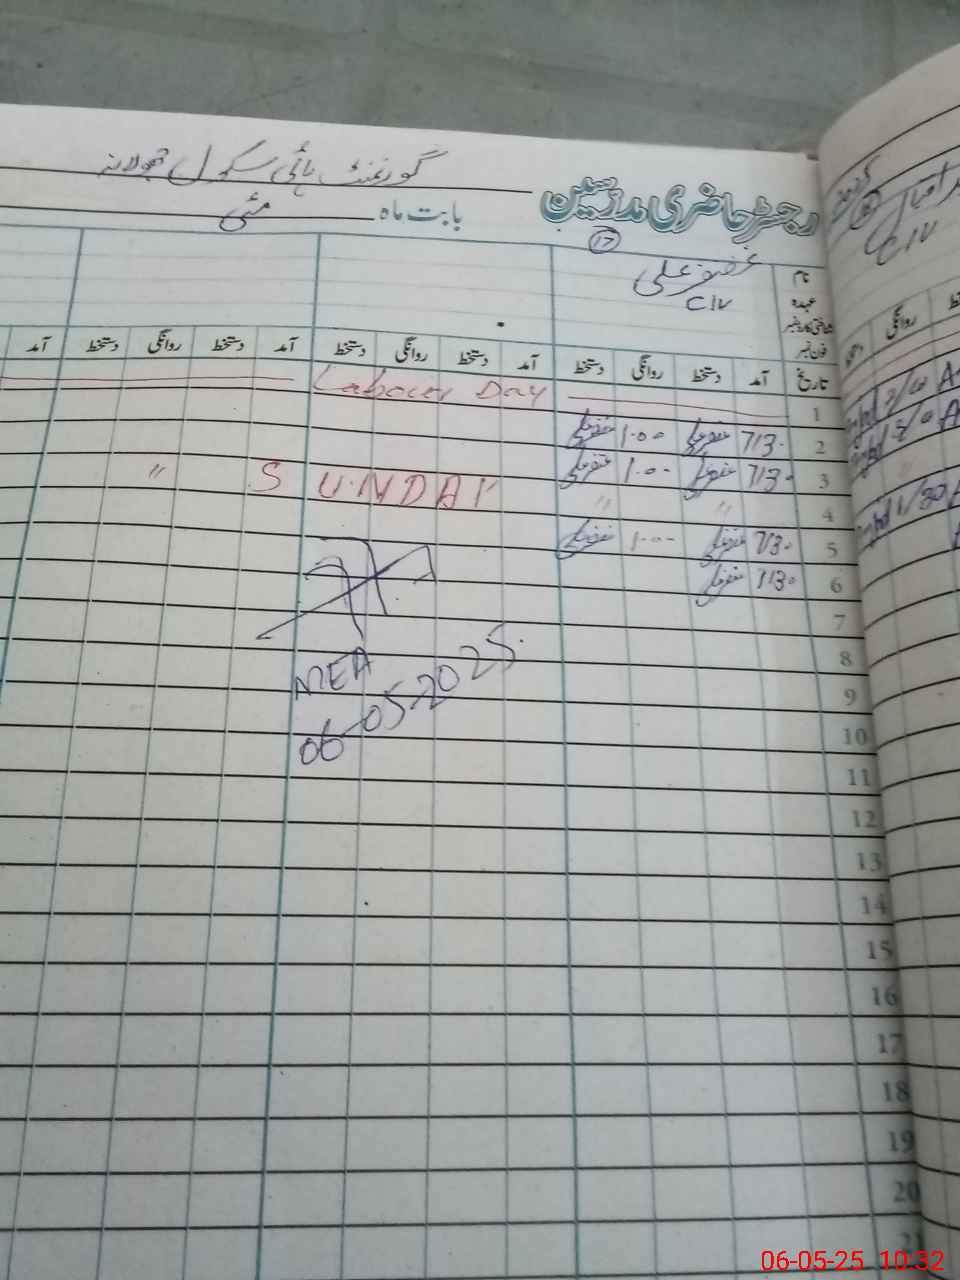 گورنمنٹ ہائی سکول
رجسٹر حاضری مدرسین
بابت ماہ مئی
17
نام غضنفر علی
عہدہ C IV
شناختی کارڈ نمبر
فون نمبر
تاریخ آمد دستخط روانگی دستخط آمد دستخط روانگی دستخط آمد دستخط روانگی دستخط آمد
1 Labour Day
2 7/30 غضنفر علی 1-00 غضنفر علی
3 7/30 غضنفر علی 1-00 غضنفر علی
4 " " SUNDAY "
5 7/30 غضنفر علی 1-00 غضنفر علی
6 7/30 غضنفر علی
7
8
9
MEA
06-05-2025
10
11
12
13
14
15
16
17
18
19
20
21
اقبال
C IV
روانگی
1/30
06-05-25 10:32